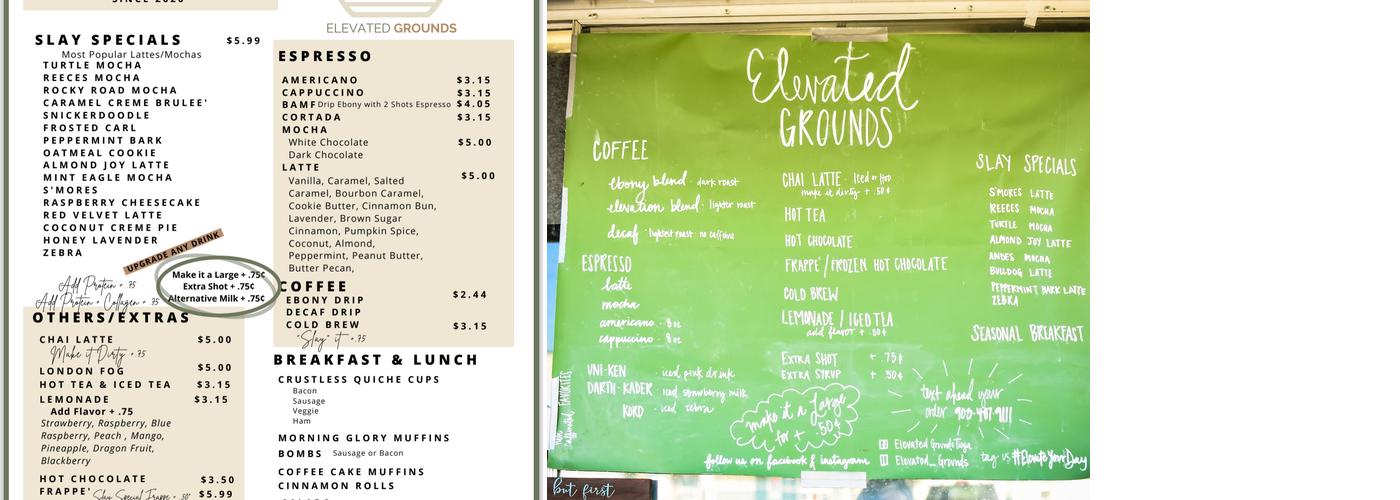 SINCE 2020
SLAY SPECIALS $5.99
Most Popular Lattes/Mochas
TURTLE MOCHA
REECES MOCHA
ROCKY ROAD MOCHA
CARAMEL CREME BRULEE'
SNICKERDOODLE
FROSTED CARL
PEPPERMINT BARK
OATMEAL COOKIE
ALMOND JOY LATTE
MINT EAGLE MOCHA
S'MORES
RASPBERRY CHEESECAKE
RED VELVET LATTE
COCONUT CREME PIE
HONEY LAVENDER
ZEBRA
UPGRADE ANY DRINK
Make it a Large + .75¢
Extra Shot + .75¢
Alternative Milk + .75¢
Add Protein + .75
Add Protein + Collagen + .75
OTHERS/EXTRAS
CHAI LATTE $5.00
Make it Dirty + .75
LONDON FOG $5.00
HOT TEA & ICED TEA $3.15
LEMONADE $3.15
Add Flavor + .75
Strawberry, Raspberry, Blue
Raspberry, Peach , Mango,
Pineapple, Dragon Fruit,
Blackberry
HOT CHOCOLATE $3.50
FRAPPE' Slay Special Frappe + .50 $5.99
ELEVATED GROUNDS
ESPRESSO
AMERICANO $3.15
CAPPUCCINO $3.15
BAMF Drip Ebony with 2 Shots Espresso $4.05
CORTADA $3.15
MOCHA
White Chocolate $5.00
Dark Chocolate
LATTE $5.00
Vanilla, Caramel, Salted
Caramel, Bourbon Caramel,
Cookie Butter, Cinnamon Bun,
Lavender, Brown Sugar
Cinnamon, Pumpkin Spice,
Coconut, Almond,
Peppermint, Peanut Butter,
Butter Pecan,
COFFEE
EBONY DRIP $2.44
DECAF DRIP
COLD BREW $3.15
"Slay" it + .75
BREAKFAST & LUNCH
CRUSTLESS QUICHE CUPS
Bacon
Sausage
Veggie
Ham
MORNING GLORY MUFFINS
BOMBS Sausage or Bacon
COFFEE CAKE MUFFINS
CINNAMON ROLLS
Elevated
GROUNDS
COFFEE
ebony blend · dark roast
elevation blend · lighter roast
decaf · lightest roast · no caffeine
ESPRESSO
latte
mocha
americano · 8oz
cappuccino · 8oz
UNI-KEN · iced pink drink
DARTH-KADER · iced strawberry milk
KOKO · iced zebra
CHAI LATTE · Iced or Hot
make it dirty + .50¢
HOT TEA
HOT CHOCOLATE
FRAPPE'/FROZEN HOT CHOCOLATE
COLD BREW
LEMONADE / ICED TEA
add flavor + 50¢
EXTRA SHOT + .75¢
EXTRA SYRUP + 50¢
make it a large
for + 50¢
SLAY SPECIALS
S'MORES LATTE
REECES MOCHA
TURTLE MOCHA
ALMOND JOY LATTE
ANDES MOCHA
BULLDOG LATTE
PEPPERMINT BARK LATTE
ZEBRA
SEASONAL BREAKFAST
text ahead your
order
follow us on facebook & instagram
Elevated Grounds
Elevated_Grounds
tag us #ElevateYourDay
but first